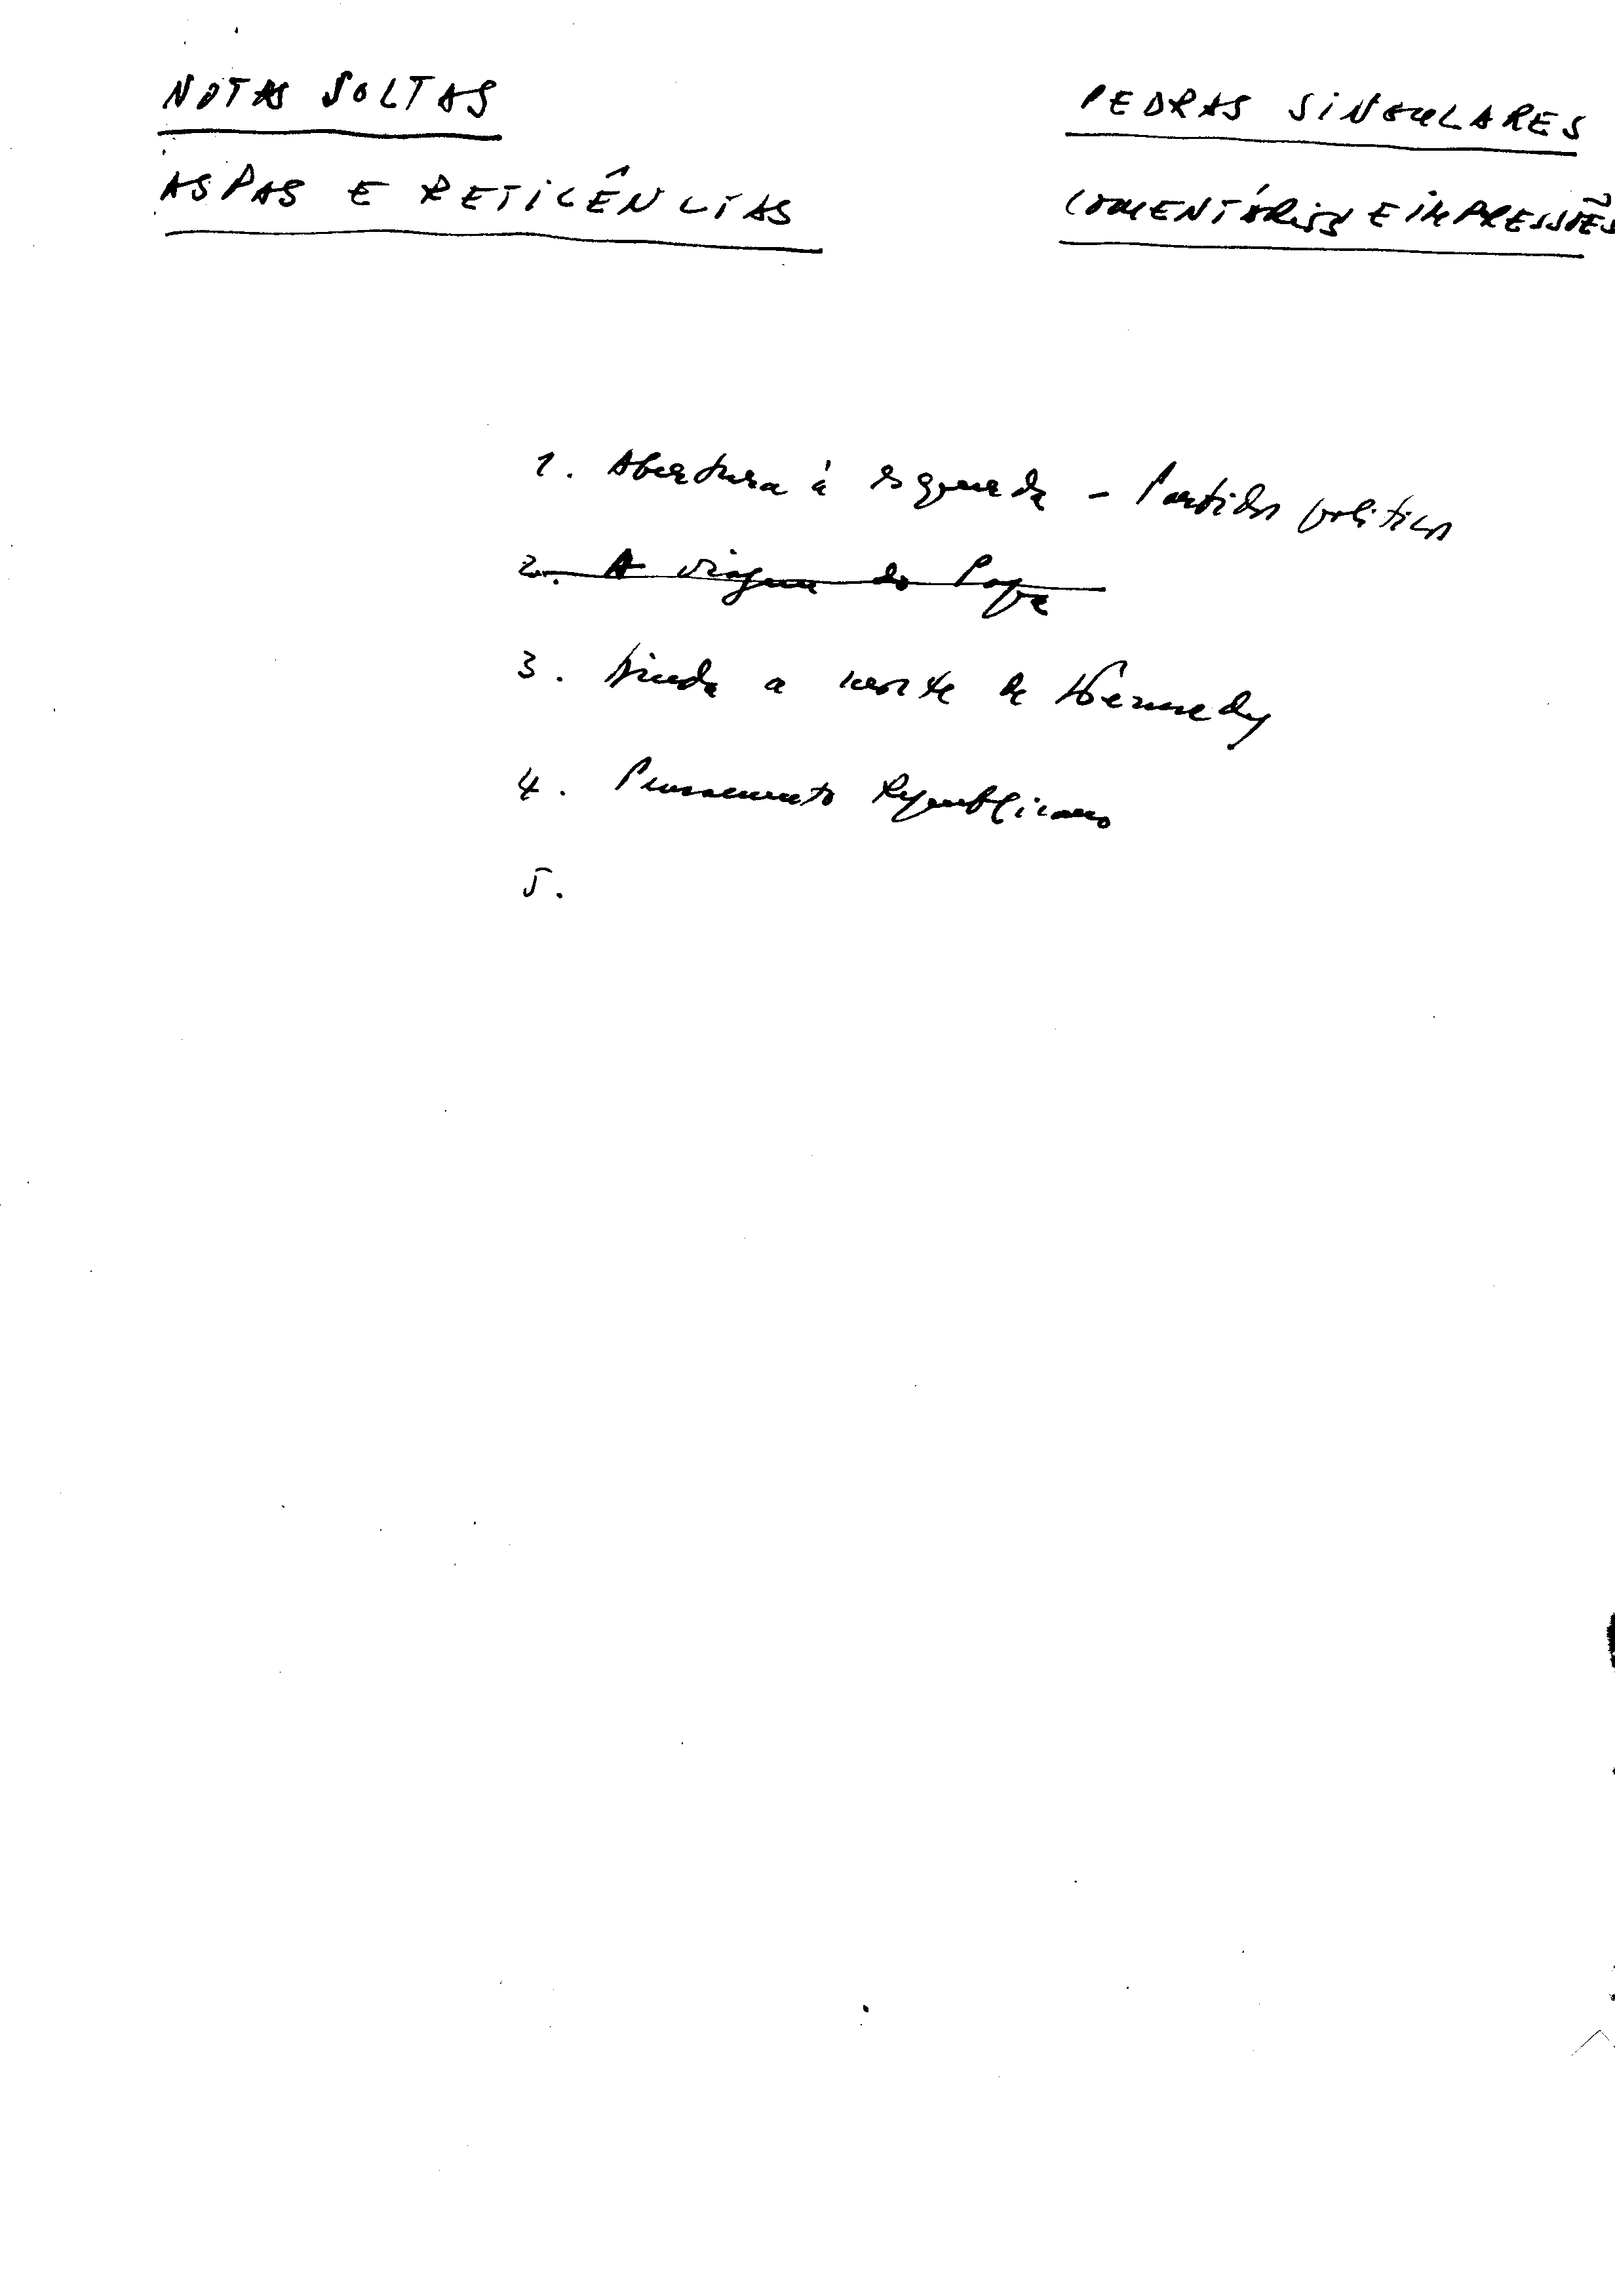 NOTAS SOLTAS
ASPAS E RETICÊNCIAS
PEDRAS SINGULARES
COMENTÁRIOS E IMPRESSÕES
1. Abertura à esquerda - Partidos políticos
2. A viagem do Papa
3. Ainda a morte de Kennedy
4. Pensamento Republicano
5.